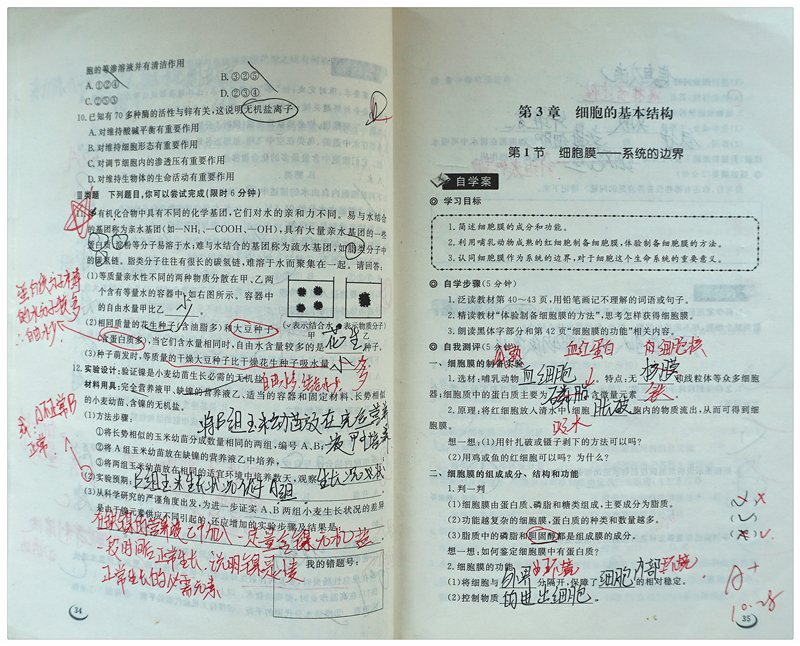 胞的等渗溶液并有清洁作用
A.①②④
B.③②⑤
C.②⑤③
D.②③④
10.已知有70多种酶的活性与锌有关,这说明无机盐离子
A.对维持酸碱平衡有重要作用
B.对维持细胞形态有重要作用
C.对调节细胞内的渗透压有重要作用
D.对维持生物体的生命活动有重要作用
Ⅲ类题 下列题目,你可以尝试完成(限时6分钟)
11.有机化合物中具有不同的化学基团,它们对水的亲和力不同。易与水结合
的基团称为亲水基团(如—NH₂、—COOH、—OH),具有大量亲水基团的一些
蛋白质、淀粉等分子易溶于水;难与水结合的基团称为疏水基团,如脂类分子中
的碳氢链。脂类分子往往有很长的碳氢链,难溶于水而聚集在一起。请回答:
(1)等质量亲水性不同的两种物质分散在甲、乙两
个含有等水量的容器中,如右图所示。容器中
的自由水量甲比乙 少
(2)相同质量的花生种子(含油脂多)和大豆种子
(含蛋白质多),当它们含水量相同时,自由水含量较多的是 花生 种子。
(3)种子萌发时,等质量的干燥大豆种子比干燥花生种子吸水量 多
自由水多 结合水少
12.实验设计:验证镍是小麦幼苗生长必需的无机盐
材料用具:完全营养液甲、缺镍的营养液乙、适当的容器和固定材料、长势相似
的小麦幼苗、含镍的无机盐。
(1)方法步骤:
①将长势相似的玉米幼苗分成数量相同的两组,编号A、B;
②将A组玉米幼苗放在缺镍的营养液乙中培养,
将B组玉米幼苗放在完全营养液甲中培养
③将两组玉米幼苗在相同的适宜环境中培养数天,观察 生长状况
(2)实验预期: B组玉米生长状况好于A组
(3)从科学研究的严谨角度出发,为进一步证实A、B两组小麦生长状况的差异
是由于镍元素供应不同引起的,还应增加的实验步骤及结果是
在缺镍的营养液乙中加入一定量含镍无机盐
一段时间后正常生长,说明镍是
正常生长的必需元素
我的错题号:
34
第3章 细胞的基本结构
第1节 细胞膜——系统的边界
自学案
◎ 学习目标
1.简述细胞膜的成分和功能。
2.利用哺乳动物成熟的红细胞制备细胞膜,体验制备细胞膜的方法。
3.认同细胞膜作为系统的边界,对于细胞这个生命系统的重要意义。
◎ 自学步骤(5分钟)
1.泛读教材第40~43页,用铅笔画记不理解的词语或句子。
2.精读教材“体验制备细胞膜的方法”,思考怎样获得细胞膜。
3.朗读黑体字部分和第42页“细胞膜的功能”相关内容。
◎ 自我测评(5分钟)
一、细胞膜的制备实验
1.选材:哺乳动物 血细胞 。特点:无 核膜 和线粒体等众多细胞
器;细胞中的蛋白质主要为 磷脂 ,含微量元素 铁
血红蛋白
细胞核
2.原理:将红细胞放入清水中,细胞 胀破 ,胞内的物质流出,从而可得到细
胞膜。
吸水
想一想:(1)用针扎破或镊子剥下的方法可以吗?
(2)用鸡或鱼的红细胞可以吗?为什么?
二、细胞膜的组成成分、结构和功能
1.判一判
(1)细胞膜由蛋白质、磷脂和糖类组成,主要成分为脂质。
(2)功能越复杂的细胞膜,蛋白质的种类和数量越多。
(3)脂质中的磷脂和胆固醇都是组成膜的成分。
想一想:如何鉴定细胞膜中有蛋白质?
2.细胞膜的功能
(1)将细胞与 外界环境 分隔开,保障了 细胞内部环境 的相对稳定。
(2)控制物质 的进出细胞 。
A+
10.28
35